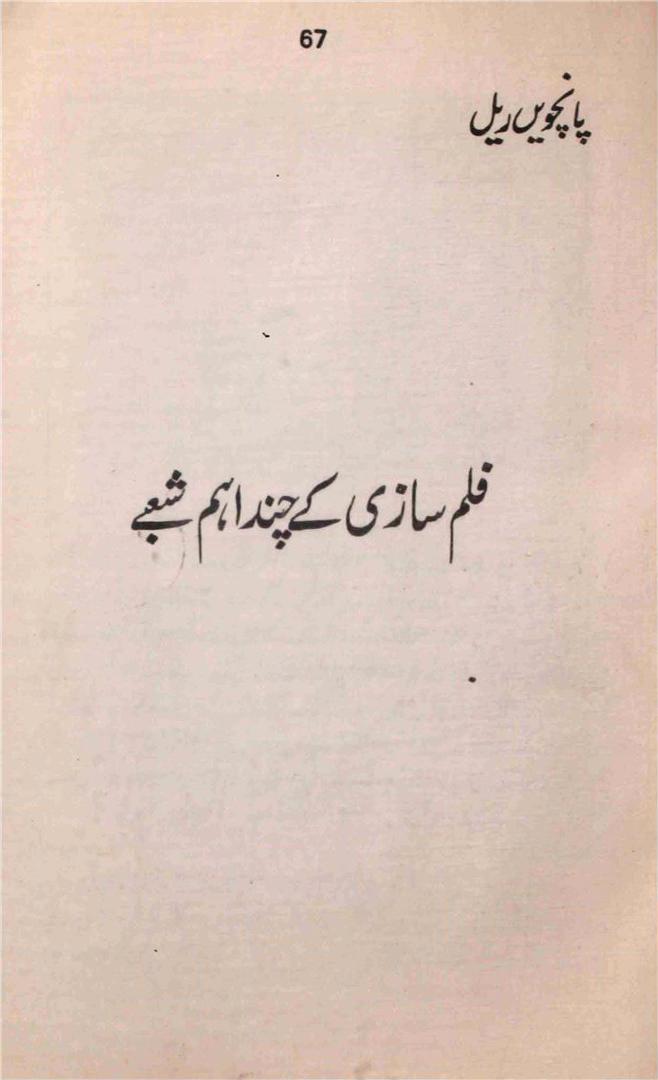 67
پانچویں ریل
فلم سازی کے چند اہم شعبے